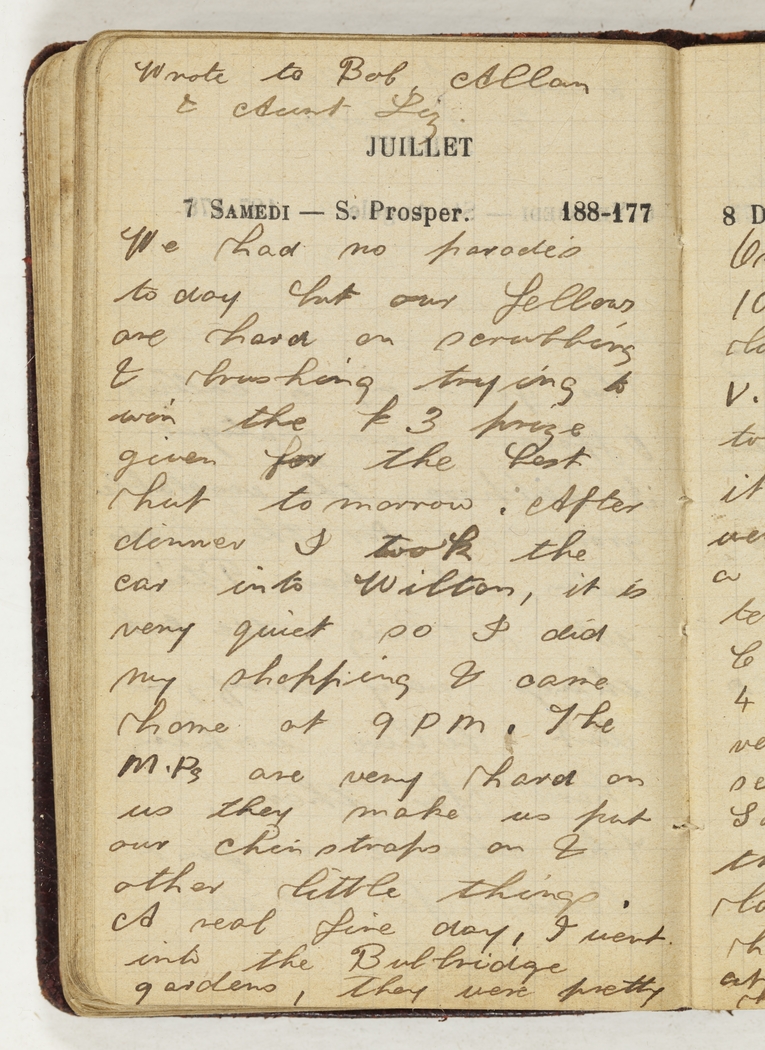 Wrote to Bob, Allan
& Aunt Liz.
JUILLET
7 SAMEDI — S. Prosper. 188-177
We had no parades
to day but our fellows
are hard on scrubbing
& brushing trying to
win the £3 prize
given for the best
hut tomorrow. After
dinner I took the
car into Wilton, it is
very quiet so I did
my shopping & came
home at 9 PM. The
M.Ps are very hard on
us they make us put
our chinstraps on &
other little things.
A real fine day, I went
into the Bulbridge
gardens, they were pretty
8 D
10
V.
to
it
a
te
4
ve
se